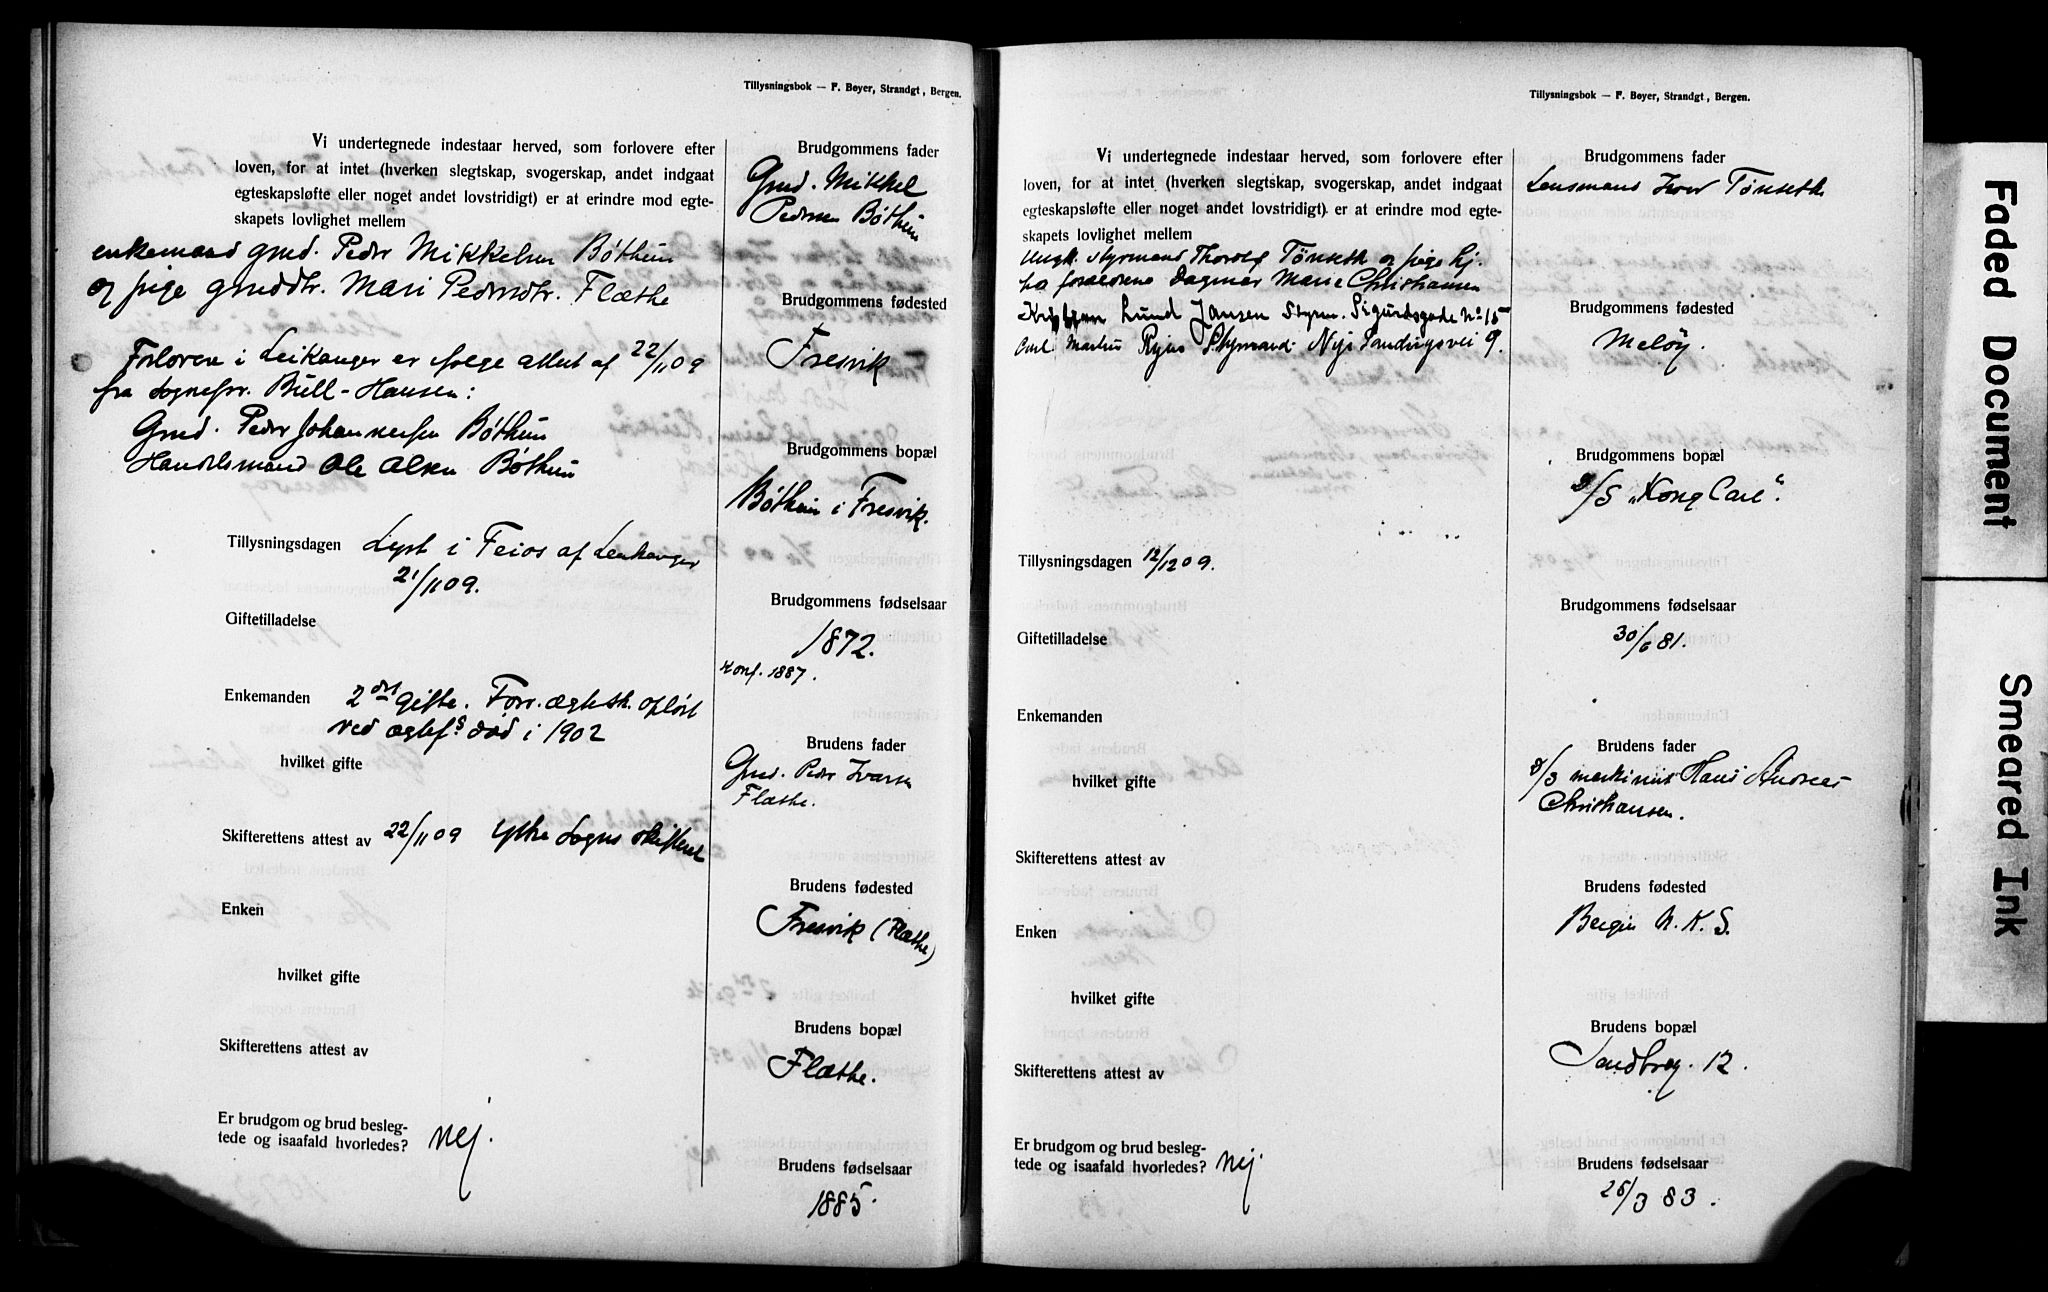 Tillysningsbok — F. Beyer, Strandgt, Bergen.
Vi undertegnede indestaar herved, som forlovere efter
loven, for at intet (hverken slegtskap, svogerskap, andet indgaat
egteskapsløfte eller noget andet lovstridigt) er at erindre mod egte-
skapets lovlighet mellem
enkemand gmd. Peder Mikkelsen Bøthun
og pige gmddtr. Mari Pedersdtr. Flæthe
Forlovere i Leikanger er ifølge attest af 22/11 09
fra sognepr. Bull-Hansen:
Gmd. Peder Johannessen Bøthun
Handelsmand Ole Olsen Bøthun
Tillysningsdagen Lyst i Feios af Leikanger
21/11 09.
Giftetilladelse
Enkemanden 2den gifte. Forr. ægtesk. opløst
ved ægtef.s død i 1902
hvilket gifte
Skifterettens attest av 22/11 09 Ytre Sogns skifteret
Enken
hvilket gifte
Skifterettens attest av
Er brudgom og brud besleg-
tede og isaafald hvorledes? Nej.
Brudgommens fader
Gmd. Mikkel
Pedersen Bøthun
Brudgommens fødested
Fresvik
Brudgommens bopæl
Bøthun i Fresvik.
Brudgommens fødselsaar
1872.
Konf. 1887.
Brudens fader
Gmd. Peder Ivarsen
Flæthe.
Brudens fødested
Fresvik (Flæthe)
Brudens bopæl
Flæthe.
Brudens fødselsaar
1885.
Tillysningsbok — F. Beyer, Strandgt, Bergen.
Vi undertegnede indestaar herved, som forlovere efter
loven, for at intet (hverken slegtskap, svogerskap, andet indgaat
egteskapsløfte eller noget andet lovstridigt) er at erindre mod egte-
skapets lovlighet mellem
Ungk. styrmand Thorolf Tønseth og pige hj.
hos forældrene Dagmar Marie Christiansen
Lund Jansen Styrm. Sigurdsgade No 15
Carl Martin Styrmand. Nye Sandviksvei 9.
Tillysningsdagen 12/12 09.
Giftetilladelse
Enkemanden
hvilket gifte
Skifterettens attest av
Enken
hvilket gifte
Skifterettens attest av
Er brudgom og brud besleg-
tede og isaafald hvorledes? Nej.
Brudgommens fader
Lensmand Iver Tønseth
Brudgommens fødested
Meløy.
Brudgommens bopæl
D/S "Kong Carl".
Brudgommens fødselsaar
30/6 81.
Brudens fader
D/S maskinist Hans Andreas
Christiansen.
Brudens fødested
Bergen N. K. S.
Brudens bopæl
Sandbrog. 12.
Brudens fødselsaar
25/3 83.
Faded Document
Smeared Ink